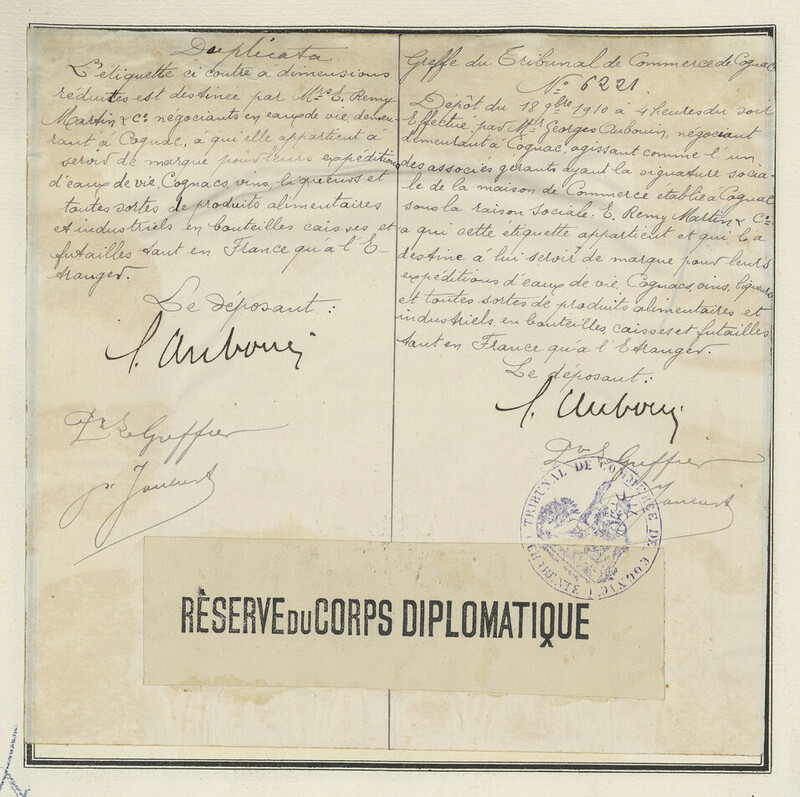 Duplicata
L'étiquette ci contre a dimensions
réduites est destinée par Mrs E. Remy
Martin & Co. négociants en eaux de vie demeu-
rant à Cognac, à qui elle appartient à
servir de marque pour leurs expéditions
d'eaux de vie, Cognacs, vins, liqueurs et
toutes sortes de produits alimentaires
et industriels en bouteilles caisses et
futailles tant en France qu'à l'E-
tranger.
Le déposant :
Dr Le Greffier
Greffe du Tribunal de Commerce de Cognac
No 6221.
Dépôt du 18 9bre 1910 à 4 heures du soir
Effectué par Mr Georges Aubouin, négociant
demeurant à Cognac, agissant comme l'un
des associés gérants ayant la signature socia-
le de la maison de Commerce établie à Cognac
sous la raison sociale: E. Remy Martin & Co.
a qui cette étiquette appartient et qui l'a
destine à lui servir de marque pour leurs
expéditions d'eaux de vie, Cognacs, vins, liqueurs
et toutes sortes de produits alimentaires et
industriels en bouteilles, caisses et futailles
tant en France qu'à l'Etranger.
Le déposant :
Le Greffier
TRIBUNAL DE COMMERCE DE COGNAC
CHARENTE
RÈSERVE DU CORPS DIPLOMATIQUE